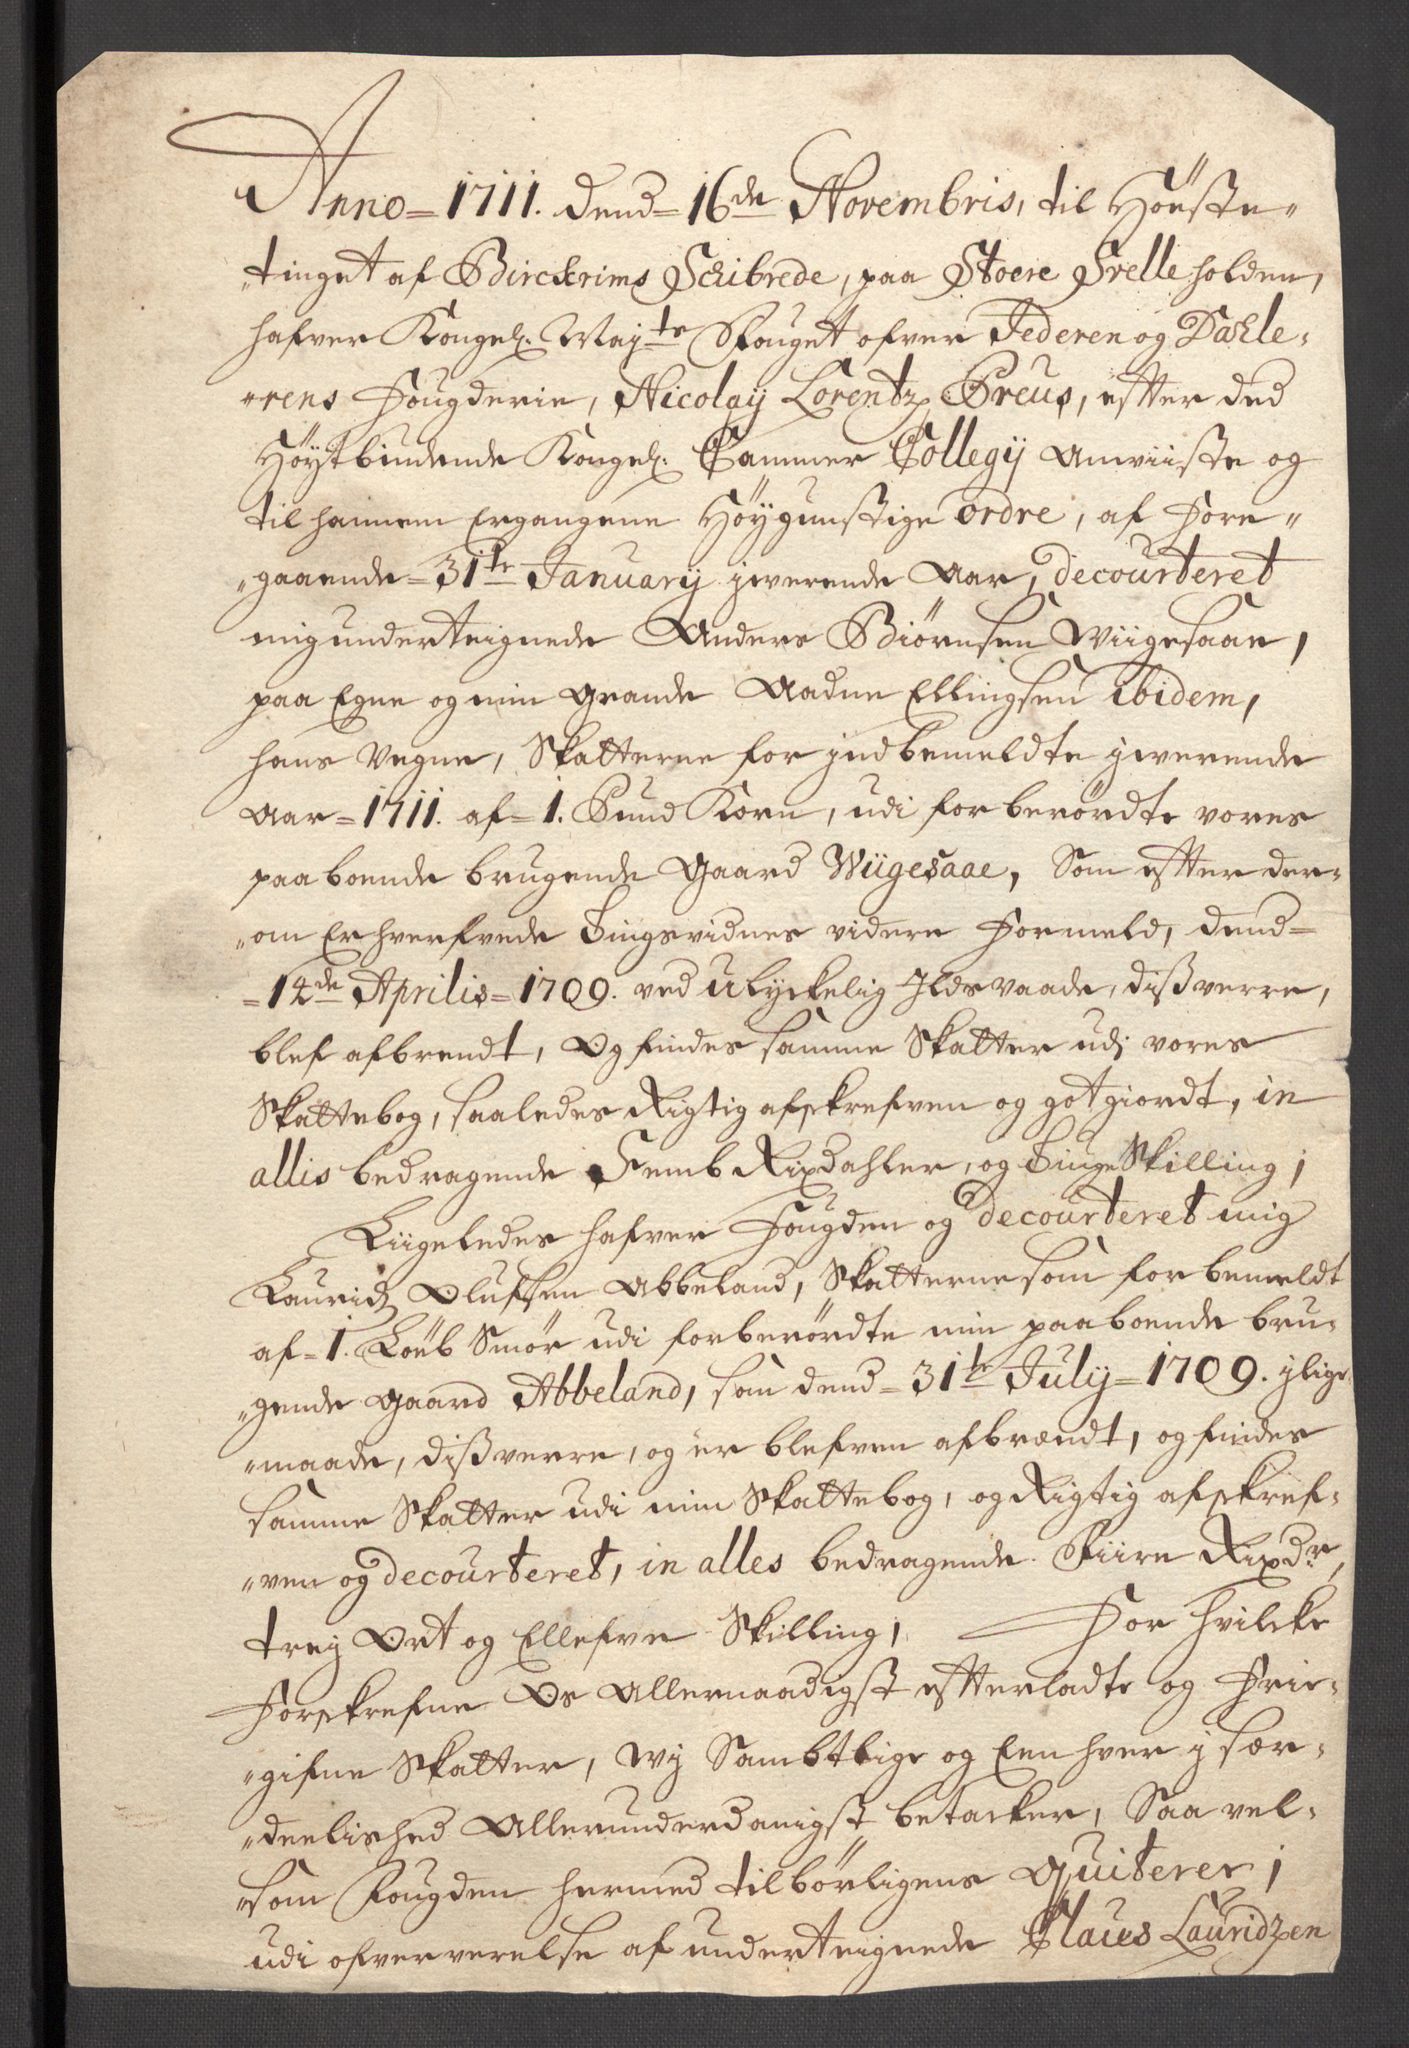 Anno = 1711. dend = 16de Novembris, til Höuste-
tinget af Birckrims Schibrede, paa Stoere Svelle holden,
hafver Kongel. May:ts Fouget ofver Jederen og Dahle-
rens Fougderie, Nicolaij Lorentz Preus, efter ded
Höytbiudende Kongel. Cammer Collegij Anviiste og
til hannem Ergangene Höÿgunstige ordre, af Fore-
gaaende = 31te January jverende Aar, decourteret
mig underteignede Anders Biörnsen Wiigesaae,
paa Egne og min Grande Aadne Ellingsen ibidem,
hans Vegne, Skatterne for jndbemeldte jverende
Aar = 1711. af = 1. Pund Korn, udi forberördte vores
paaboende brugende Gaard Wiigesaae, Som efter der-
om Erhverfvede Tingsvidnes videre Formeld, dend =
= 14de Aprilis = 1709. ved Ulyckelig Jldsvaade, dißverre,
blef afbrendt, Og findes samme Skatter udj vores
Skattebog, saaledes Rigtig afskrefven og gotgiordt, in
allis bedragende Femb Rixdahler, og Tiuge Skilling;
Liigeledes hafver Fougden og decourteret mig
Lauridz Olufsen Abbeland, Skatterne som forbemeldt
af = 1. Löeb Smör udi forberördte min paaboende bru-
gende Gaard Abbeland, som dend = 31te July = 1709. jlige-
maade, dißverre, og er blefven afbrændt, og findes
samme Skatter udi min Skattebog, og Rigtig afskref-
ven og decourteret, in alles bedragende Fiire Rixdr,
trey Ort og Ellefve Skilling, For hvilcke
Forskrefne Os Allernaadigst efterladte og Frie-
gifne Skatter, Wy Sambtlige og Een hver j sær-
deelished Allerunderdanigst betacker, Saa vel-
som Fougden hermed tilbörligens Quiterer;
udi ofververelse af underteignede Claues Lauridzen